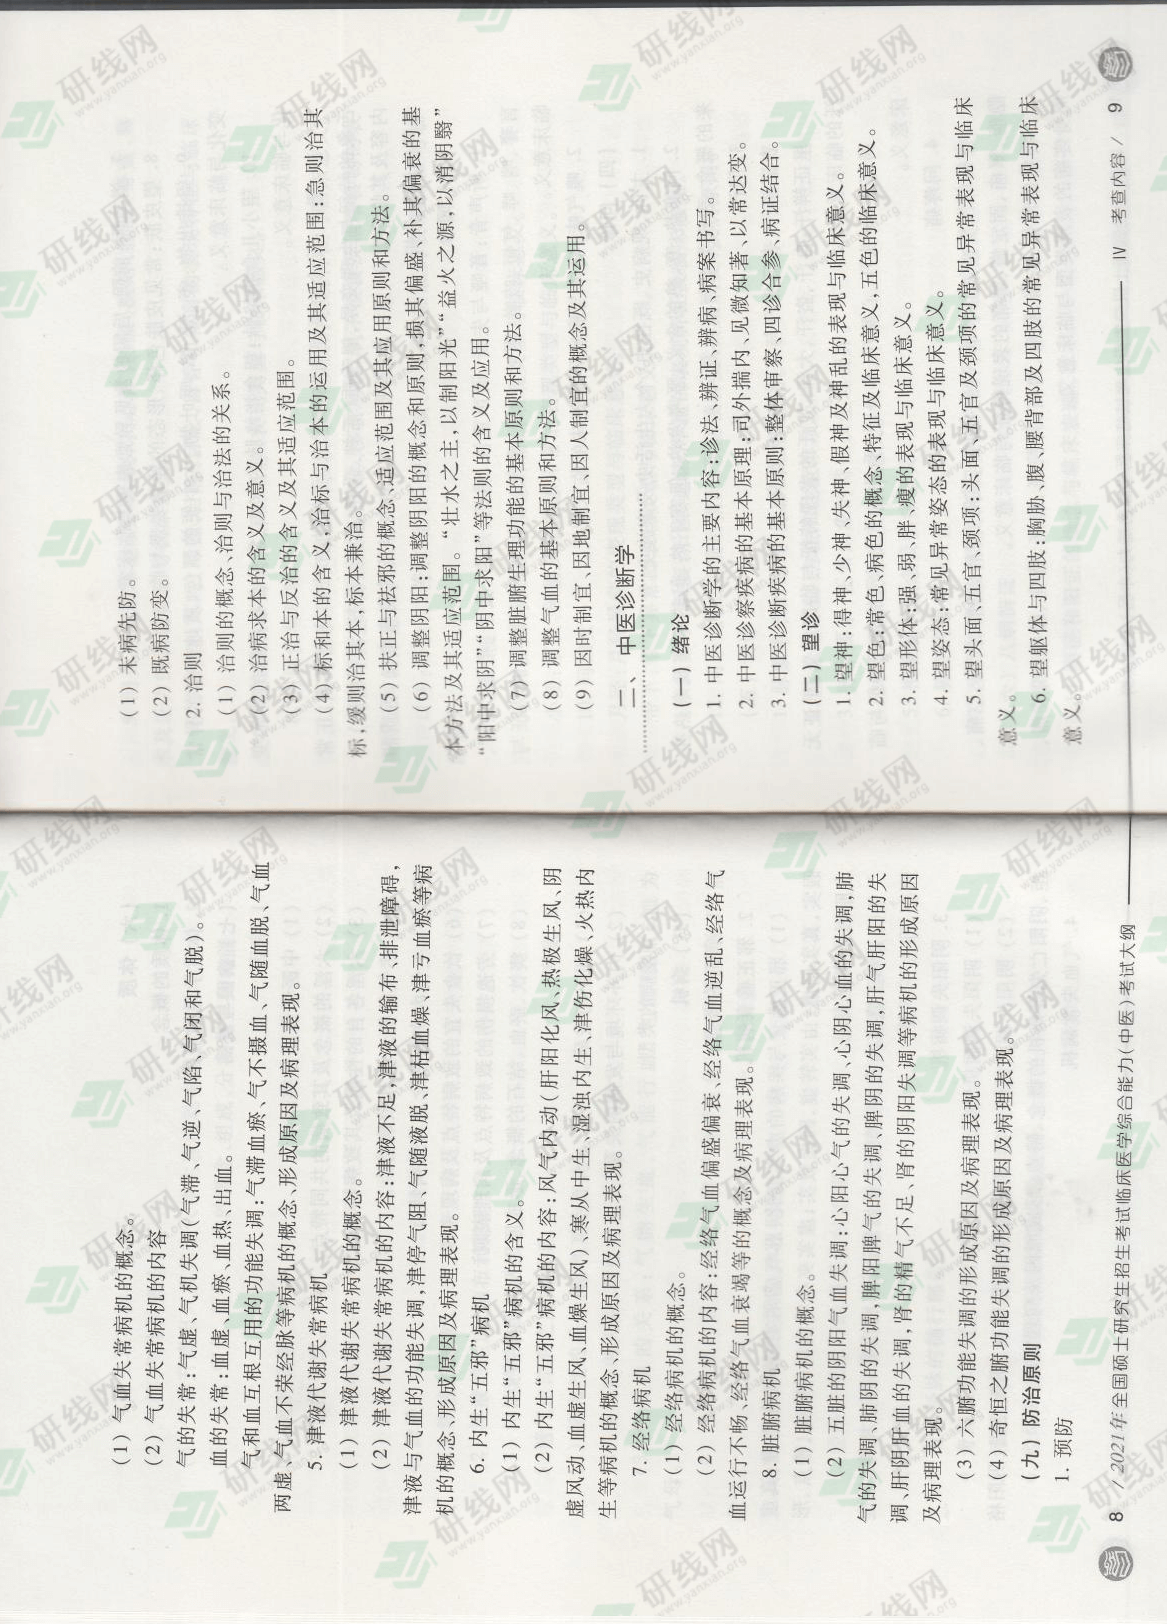 (1) 气血失常病机的概念。
(2) 气血失常病机的内容
气的失常:气虚、气机失调(气滞、气逆、气陷、气闭和气脱)。
血的失常:血虚、血瘀、血热、出血。
气和血互根互用的功能失调:气滞血瘀、气不摄血、气随血脱、气血
两虚、气血不荣经脉等病机的概念、形成原因及病理表现。
5. 津液代谢失常病机
(1) 津液代谢失常病机的概念。
(2) 津液代谢失常病机的内容:津液不足,津液的输布、排泄障碍,
津液与气血的功能失调,津停气阻、气随液脱、津枯血燥、津亏血瘀等病
机的概念、形成原因及病理表现。
6. 内生“五邪”病机
(1) 内生“五邪”病机的含义。
(2) 内生“五邪”病机的内容:风气内动(肝阳化风、热极生风、阴
虚风动、血虚生风、血燥生风)、寒从中生、湿浊内生、津伤化燥、火热内
生等病机的概念、形成原因及病理表现。
7. 经络病机
(1) 经络病机的概念。
(2) 经络病机的内容:经络气血偏盛偏衰、经络气血逆乱、经络气
血运行不畅、经络气血衰竭等的概念及病理表现。
8. 脏腑病机
(1) 脏腑病机的概念。
(2) 五脏的阴阳气血失调:心阳心气的失调、心阴心血的失调,肺
气的失调、肺阴的失调,脾阳脾气的失调、脾阴的失调,肝气肝阳的失
调、肝阴肝血的失调,肾的精气不足、肾的阴阳失调等病机的形成原因
及病理表现。
(3) 六腑功能失调的形成原因及病理表现。
(4) 奇恒之腑功能失调的形成原因及病理表现。
(九) 防治原则
1. 预防
8 / 2021年全国硕士研究生招生考试临床医学综合能力(中医)考试大纲
(1) 未病先防。
(2) 既病防变。
2. 治则
(1) 治则的概念、治则与治法的关系。
(2) 治病求本的含义及意义。
(3) 正治与反治的含义及其适应范围。
(4) 标和本的含义,治标与治本的运用及其适应范围:急则治其
标,缓则治其本,标本兼治。
(5) 扶正与祛邪的概念、适应范围及其应用原则和方法。
(6) 调整阴阳:调整阴阳的概念和原则,损其偏盛、补其偏衰的基
本方法及其适应范围。“壮水之主,以制阳光”“益火之源,以消阴翳”
“阳中求阴”“阴中求阳”等法则的含义及应用。
(7) 调整脏腑生理功能的基本原则和方法。
(8) 调整气血的基本原则和方法。
(9) 因时制宜、因地制宜、因人制宜的概念及其运用。
二、中医诊断学
(一) 绪论
1. 中医诊断学的主要内容:诊法、辨证、辨病、病案书写。
2. 中医诊察疾病的基本原理:司外揣内、见微知著、以常达变。
3. 中医诊断疾病的基本原则:整体审察、四诊合参、病证结合。
(二) 望诊
1. 望神:得神、少神、失神、假神及神乱的表现与临床意义。
2. 望色:常色、病色的概念、特征及临床意义,五色的临床意义。
3. 望形体:强、弱、胖、瘦的表现与临床意义。
4. 望姿态:常见异常姿态的表现与临床意义。
5. 望头面、五官、颈项:头面、五官及颈项的常见异常表现与临床
意义。
6. 望躯体与四肢:胸胁、腹、腰背部及四肢的常见异常表现与临床
意义。
IV 考查内容 / 9
研线网
www.yanxian.org